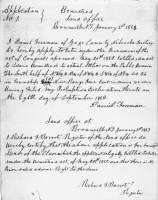 Application No. 1
Homestead
Land Office
Brownville N.T. January 1st 1863
I Daniel Freeman of Gage County Nebraska Territory
Do hereby apply to Enter under the
act of Congress approved May 20th 1862 entitled an act
to secure Homesteads to actual Settlers on the Public Domain
The South half of N.W. & N.E.
of S.W.
Section
Range
Containing 160 acres
Having filed my
the Eighth day of September 1862
Daniel Freeman
Land Office at
Brownville N.T. January 1st 1863
I Richard F. Barret, Register of the Land Office do
Hereby certify that the above application is for Surveyed
Lands of the Class which the applicant is legally entitled to Enter
under the Homestead act of May 20th 1862 and that there is no
Prior valid adverse Right to the Same
Richard F. Barret
Register